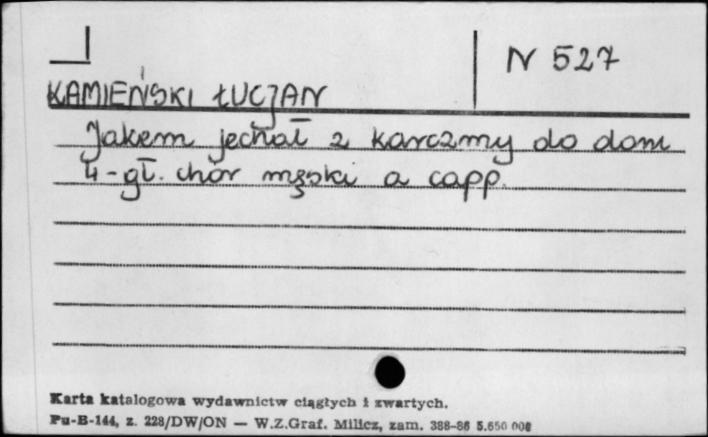 N 527
KAMIEŃSKI ŁUCJAN
Jakem jechał z karczmy do dom
4-gł. chór męski a capp.
Karta katalogowa wydawnictw ciągłych i zwartych.
Pu-B-144, z. 228/DW/ON — W.Z.Graf. Milicz, zam. 388-86 5.650 000